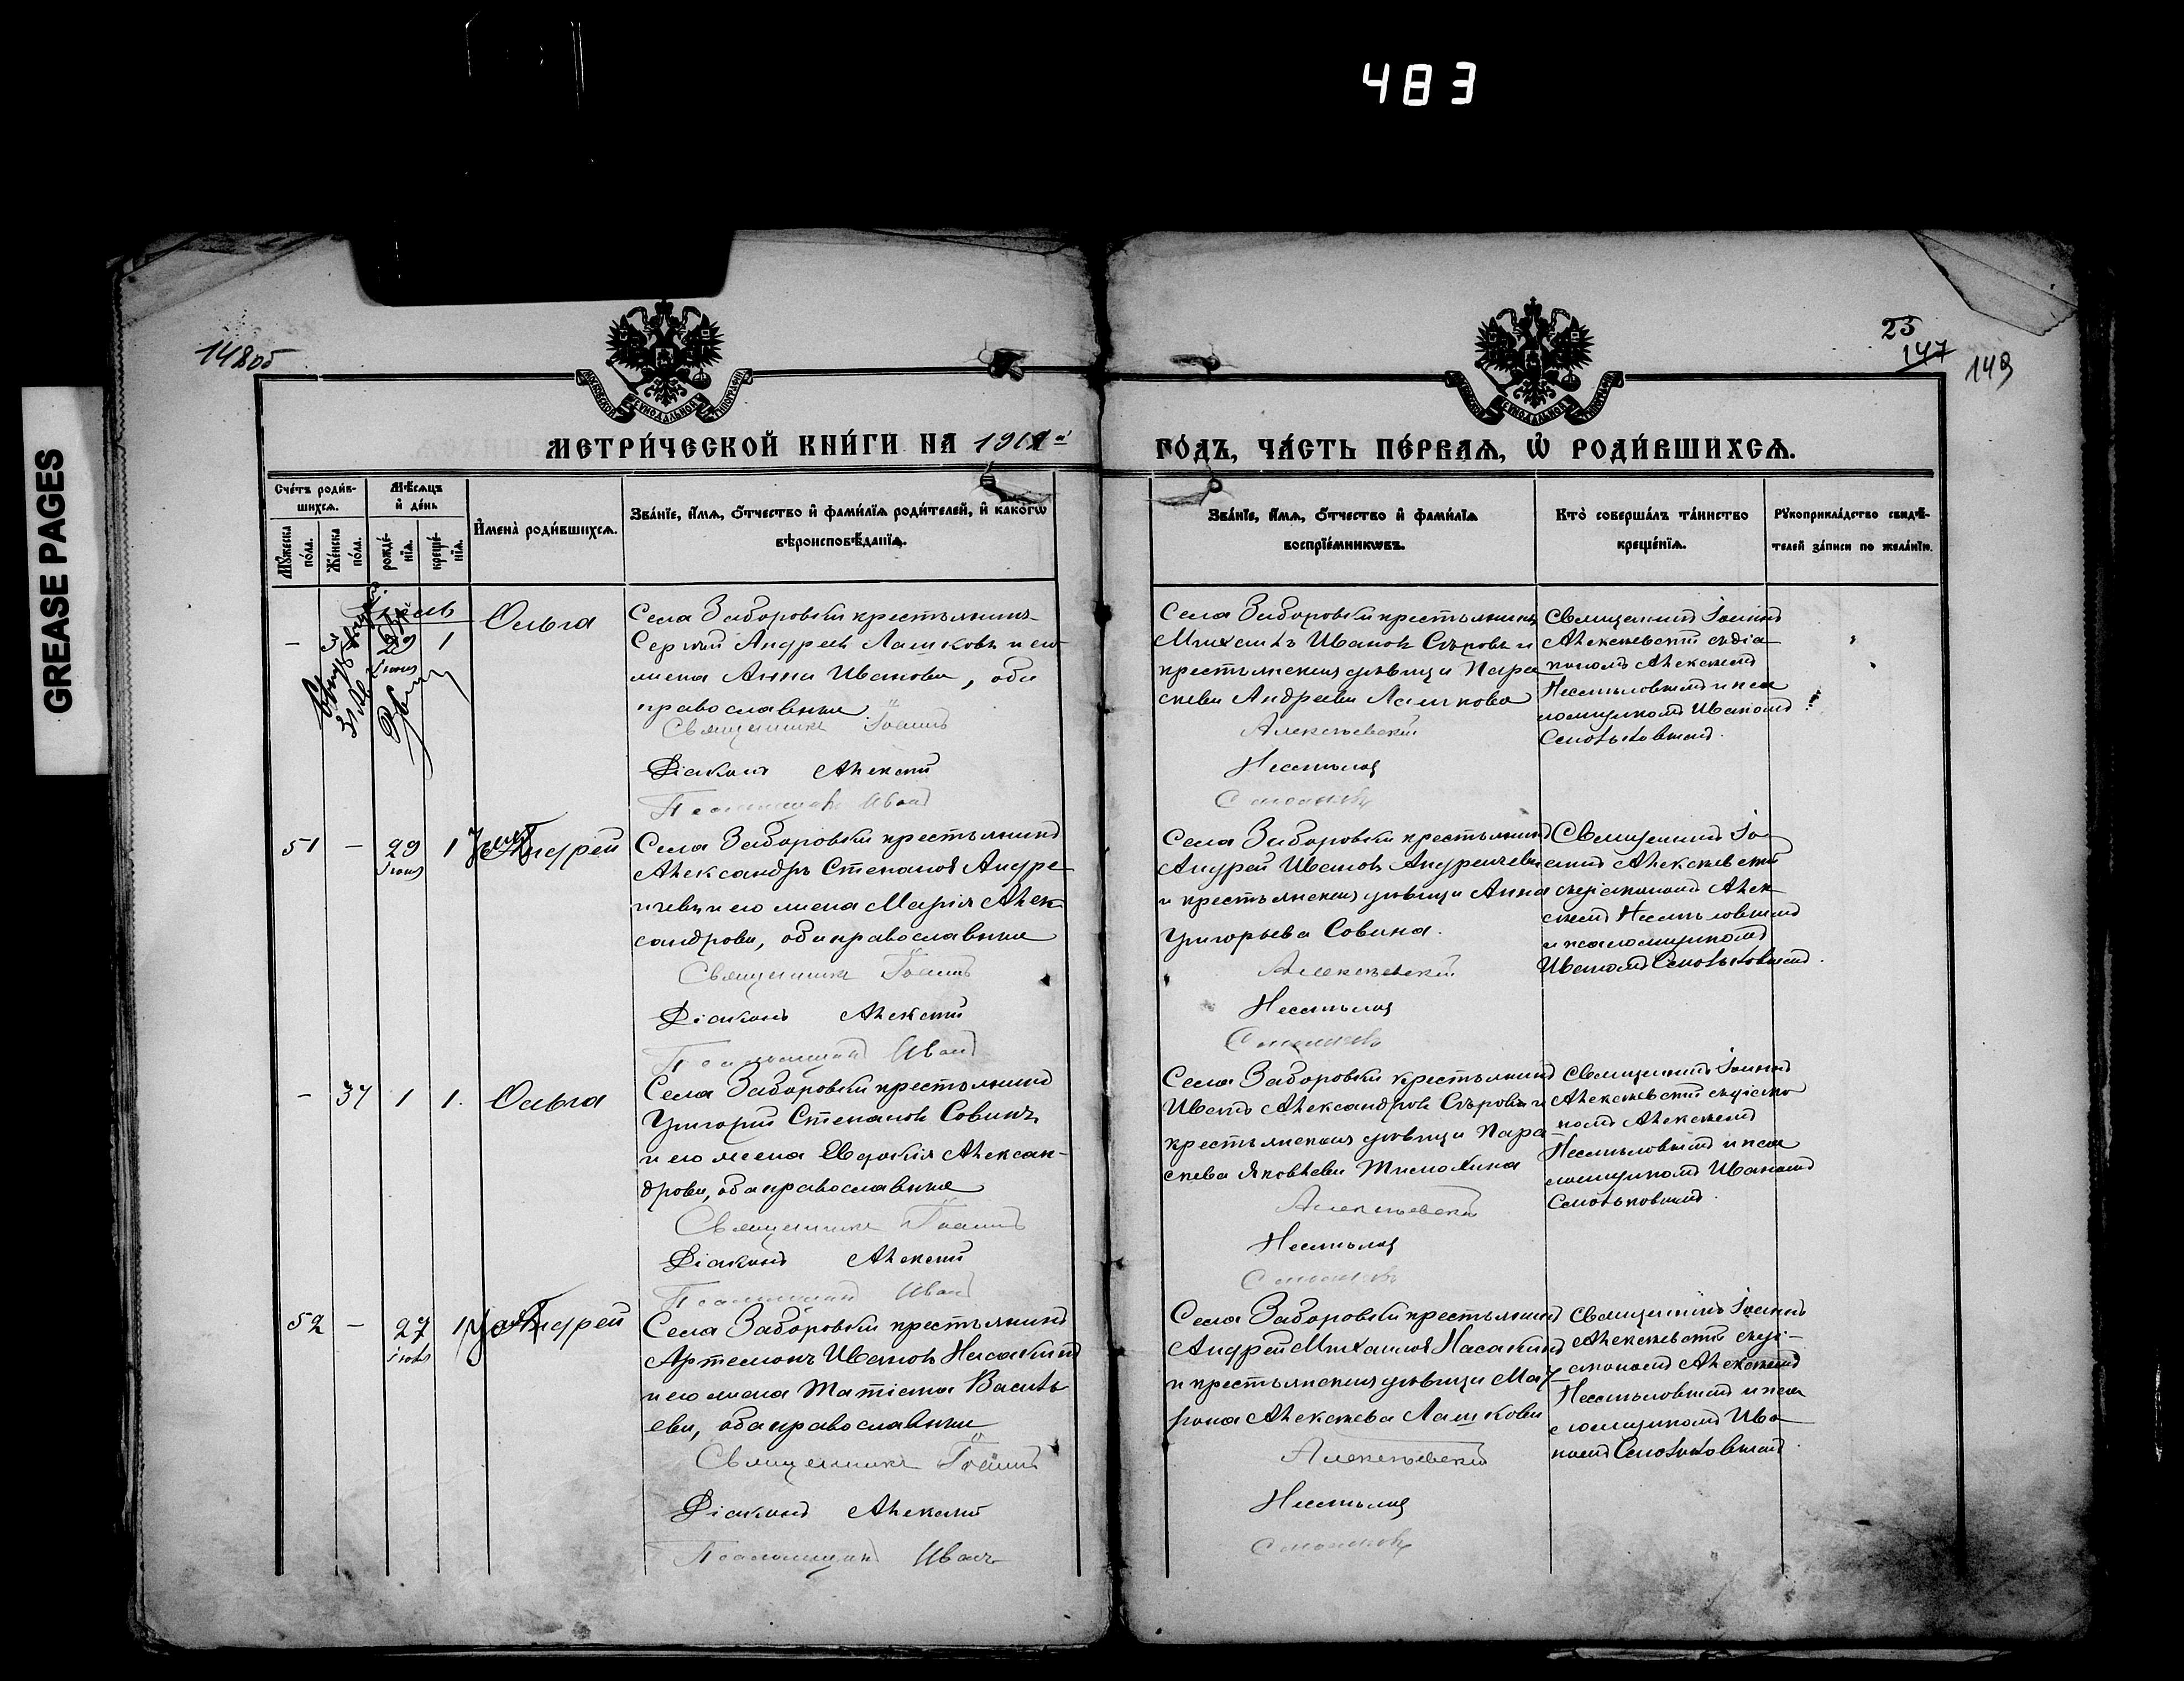 483
GREASE PAGES
148об
25
147
149
МОСКОВСКОЙ СѴНОДАЛЬНОЙ ТИПОГРАФІИ
СѴНОДАЛЬНОЙ
МЕТРИ́ЧЕСКОЙ КНИ́ГИ НА 191
ГО́ДЪ, ЧА́СТЬ ПЕ́РВАѦ, Ѡ҆ РОДИ́ВШИХСѦ.
Сче́тъ роди́вшихсѧ.
Мꙋ́жеска по́ла.
Же́нска по́ла.
Мѣ́сѧцъ и҆ де́нь
рожде́нїѧ.
креще́нїѧ.
И҆мена̀ роди́вшихсѧ.
Зва́нїе, и҆́мѧ, ѻ҆́тчество и҆ фами́лїѧ роди́телей, и҆ како́гѡ
вѣроисповѣ́данїѧ.
Зва́нїе, и҆́мѧ, ѻ҆́тчество и҆ фами́лїѧ
воспрїе́мникѡвъ.
Кто̀ соверша́лъ та́инство
креще́нїѧ.
Рꙋкоприкла́дство свидѣ́-
телей за́писи по жела́нїю.
29 1 Ольга
Села Заборовки крестьянинъ
Сергѣй Андреевъ Лашковъ и его
жена Анна Иванова, оба
православные
Священникъ Іоаннъ
Діаконъ Алексѣй
Псаломщикъ Иванъ
Села Заборовки крестьянинъ
Михаилъ Ивановъ Сѣровъ и
крестьянская дѣвица Пара
скева Андреева Лашкова
Алексѣевскій
Несмѣловъ
Священникъ Іоаннъ
Алексѣевскій съ діа-
кономъ Алексѣемъ
Несмѣловымъ и пса
ломщикомъ Иваномъ
51 – 29 1 Андрей
Села Заборовки крестьянинъ
Александръ Степановъ Андре
ичевъ и его жена Марія Алек
сандрова, оба православные
Священникъ Іоаннъ
Діаконъ Алексѣй
Псаломщикъ Иванъ
Села Заборовки крестьянинъ
Андрей Ивановъ Андреичевъ
и крестьянская дѣвица Анна
Григорьева Совина.
Алексѣевскій
Несмѣловъ
Священникъ Іо
аннъ Алексѣевскій
съ діакономъ Алек
сѣемъ Несмѣловымъ
и псаломщикомъ
Иваномъ
– 37 1 1. Ольга
Села Заборовки крестьянинъ
Григорій Степановъ Совинъ
и его жена Евдокія Алексан-
дрова, оба православные
Священникъ Іоаннъ
Діаконъ Алексѣй
Псаломщикъ Иванъ
Села Заборовки крестьянинъ
Иванъ Александровъ Сѣровъ и
крестьянская дѣвица Пара-
скева Яковлева Тимохина
Алексѣевскій
Несмѣловъ
Священникъ Іоаннъ
Алексѣевскій съ діако
номъ Алексѣемъ
Несмѣловымъ и пса
ломщикомъ Иваномъ
52 – 27 1 Андрей
Села Заборовки крестьянинъ
Артемонъ Ивановъ Насакинъ
и его жена Татіана Василь
ева, оба православные
Священникъ Іоаннъ
Діаконъ Алексѣй
Псаломщикъ Иванъ
Села Заборовки крестьянинъ
Андрей Михаиловъ Насакинъ
и крестьянская дѣвица Мат-
рона Алексѣева Лашкова
Алексѣевскій
Несмѣловъ
Священникъ Іоаннъ
Алексѣевскій съ ді-
акономъ Алексѣемъ
Несмѣловымъ и пса
ломщикомъ Ива
номъ